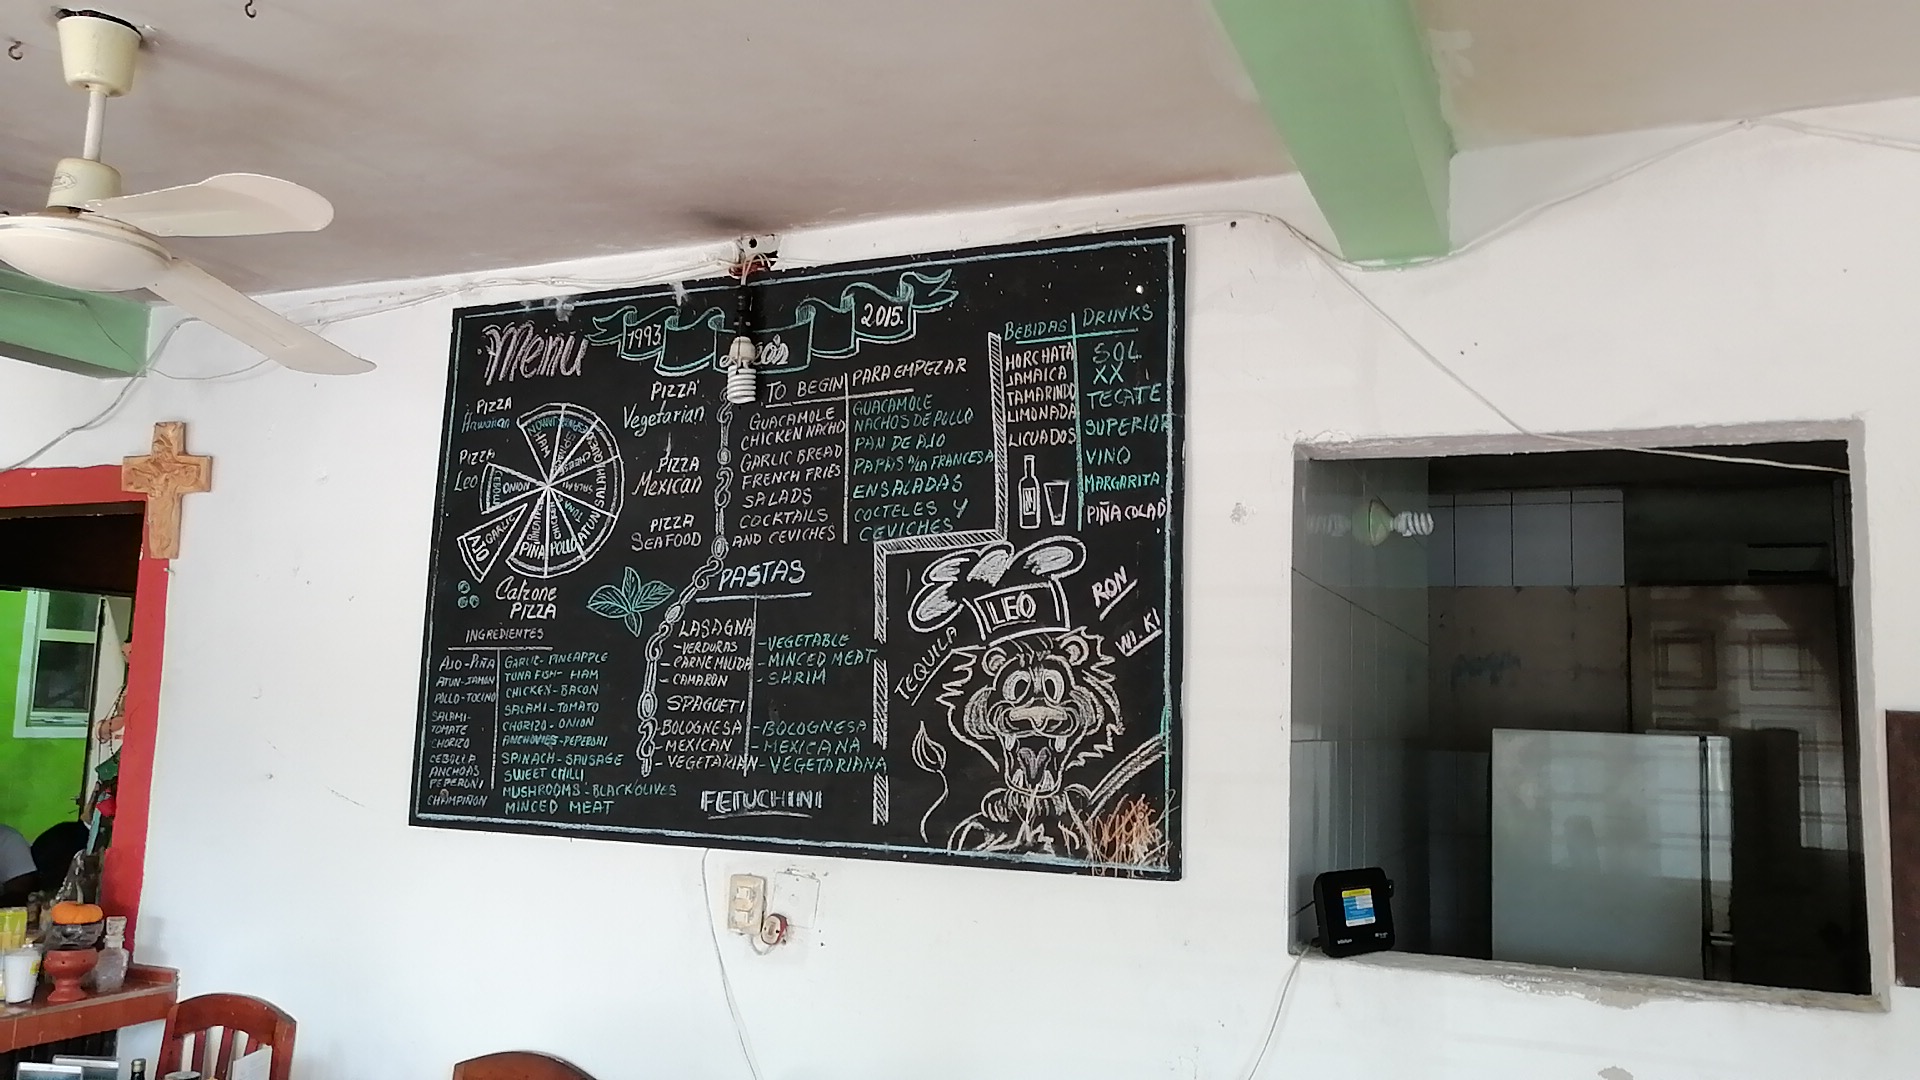 Menu
1993
2015.
PIZZA
Hawaiian
PIZZA
Leo
PIZZA
Vegetarian
PIZZA
Mexican
PIZZA
SEAFOOD
Calzone
PIZZA
JAMON
HAM
QUESO
CHEESE
SALAMI
SALAMI
ATUN
TUNA
POLLO
CHICKEN
PIÑA
AJO
GARLIC
CEBOLLA
ONION
INGREDIENTES
AJO-PIÑA
ATUN-JAMON
POLLO-TOCINO
SALAMI-
TOMATE
CHORIZO
CEBOLLA
ANCHOAS
PEPERONI
CHAMPIÑON
GARLIC-PINEAPPLE
TUNA FISH- HAM
CHICKEN-BACON
SALAMI-TOMATO
CHORIZO-ONION
ANCHOVIES-PEPERONI
SPINACH-SAUSAGE
SWEET CHILLI
MUSHROOMS-BLACK OLIVES
MINCED MEAT
TO BEGIN
GUACAMOLE
CHICKEN NACHO
GARLIC BREAD
FRENCH FRIES
SALADS
COCKTAILS
AND CEVICHES
PARA EMPEZAR
GUACAMOLE
NACHOS DE POLLO
PAN DE AJO
PAPAS A/LA FRANCESA
ENSALADAS
COCTELES Y
CEVICHES
PASTAS
LASAGNA
-VERDURAS
-CARNE MOLIDA
-CAMARON
-VEGETABLE
-MINCED MEAT
-SHRIM
SPAGUETI
-BOLOGNESA
-MEXICAN
-VEGETARIAN
-BOLOGNESA
-MEXICANA
-VEGETARIANA
FETUCHINI
BEBIDAS
HORCHATA
JAMAICA
TAMARINDO
LIMONADA
LICUADOS
DRINKS
SOL
XX
TECATE
SUPERIOR
VINO
MARGARITA
PIÑA COLAD
LEO
TEQUILA
RON
WI.KI